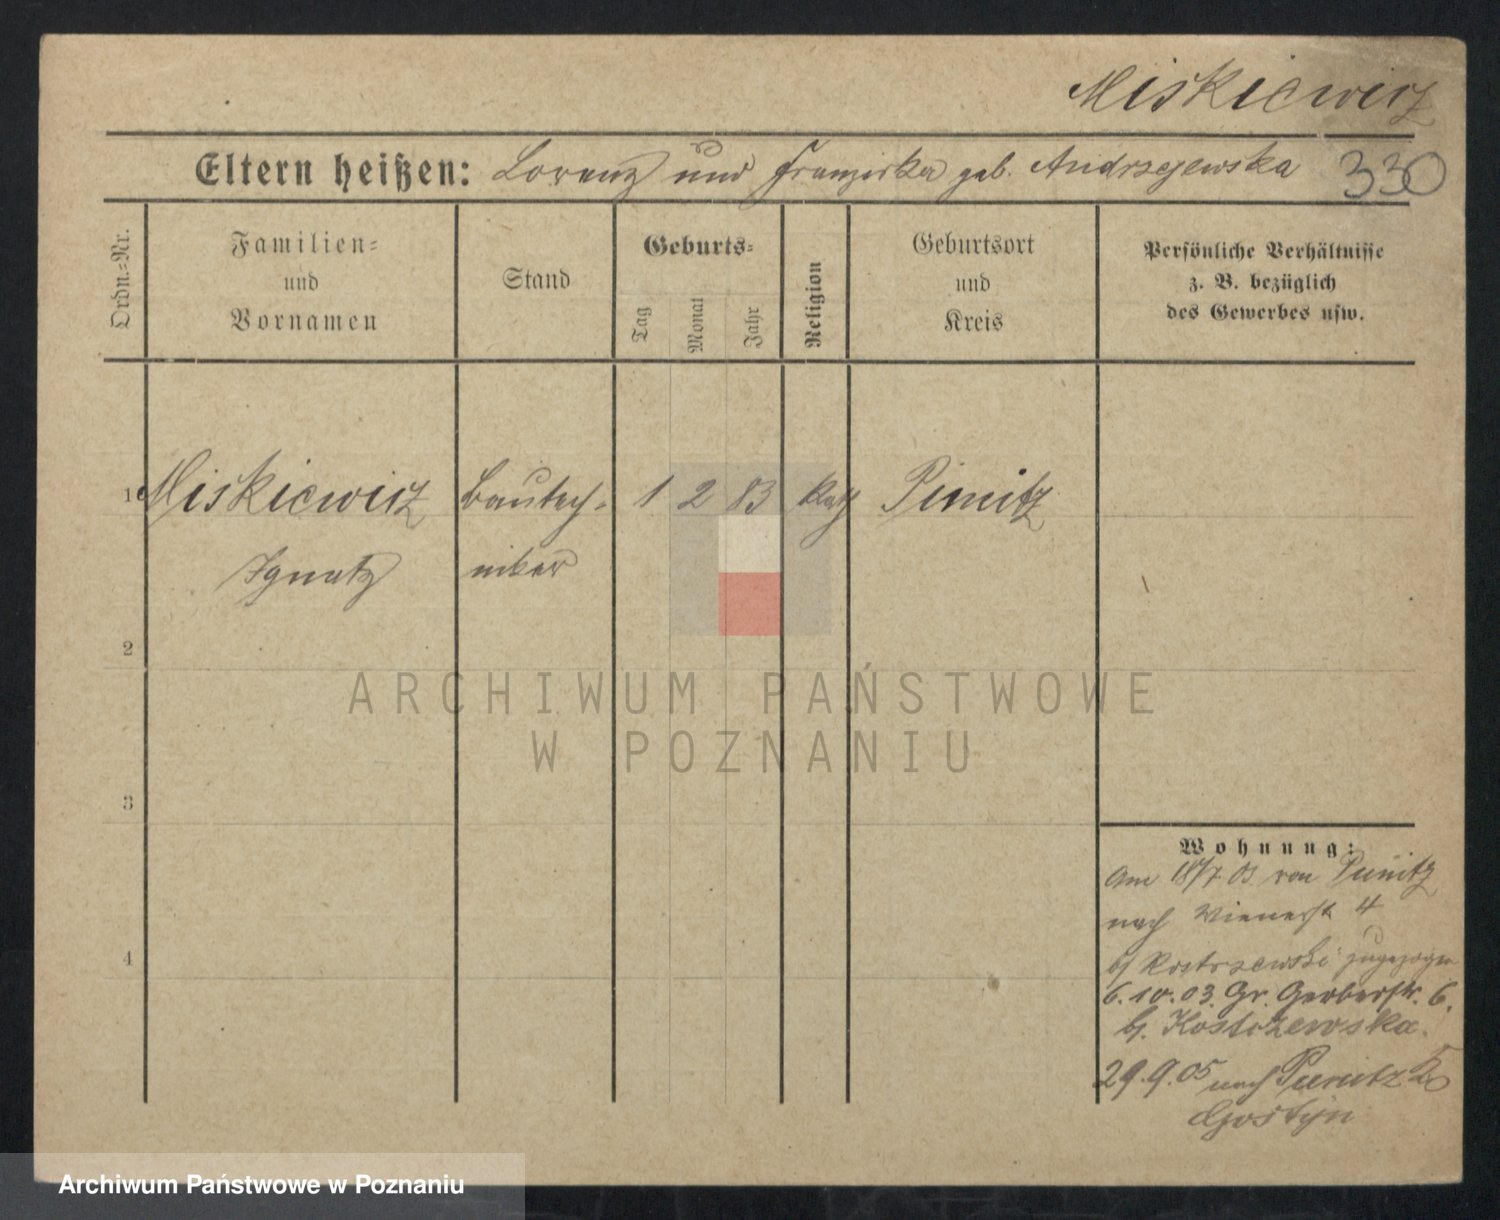 Miskiewicz
Eltern heißen: Lorenz und Franziska geb. Andrzejewska 330
Ordn.-Nr.
Familien-
und
Vornamen
Stand
Geburts-
Tag
Monat
Jahr
Religion
Geburtsort
und
Kreis
Persönliche Verhältnisse
z. B. bezüglich
des Gewerbes usw.
1 Miskiewicz Bautech- 1 2 83 kath Punitz
Ignatz niker
2
ARCHIWUM PAŃSTWOWE
W POZNANIU
3
Wohnung:
Am 18/7 03 von Punitz
nach Wienerstr 4
bei Kostrzewski zugezogen
4
6.10.03. Gr. Gerberstr. 6.
b. Kostrzewska.
29.9.05 nach Punitz
Gostyn
Archiwum Państwowe w Poznaniu